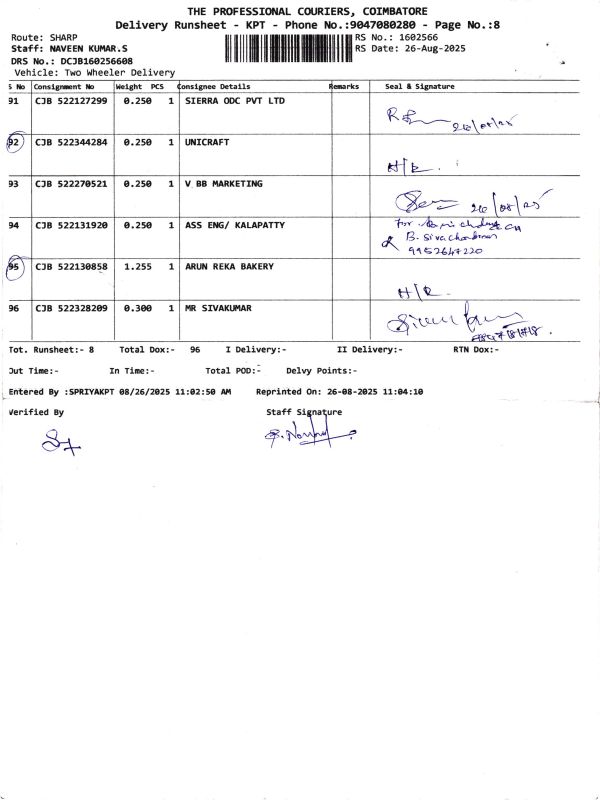 THE PROFESSIONAL COURIERS, COIMBATORE
Delivery Runsheet - KPT - Phone No.:9047080280 - Page No.:8
Route: SHARP
RS No.: 1602566
Staff: NAVEEN KUMAR.S
RS Date: 26-Aug-2025
DRS No.: DCJB160256608
Vehicle: Two Wheeler Delivery
S No Consignment No Weight PCS Consignee Details Remarks Seal & Signature
91 CJB 522127299 0.250 1 SIERRA ODC PVT LTD
26/08/25
92 CJB 522344284 0.250 1 UNICRAFT
H/R.
93 CJB 522270521 0.250 1 V BB MARKETING
26/08/25
94 CJB 522131920 0.250 1 ASS ENG/ KALAPATTY
For
B. Sivachandran
9952647220
95 CJB 522130858 1.255 1 ARUN REKA BAKERY
H/R.
96 CJB 522328209 0.300 1 MR SIVAKUMAR
Tot. Runsheet:- 8 Total Dox:- 96 I Delivery:- II Delivery:- RTN Dox:-
Out Time:- In Time:- Total POD:- Delvy Points:-
Entered By :SPRIYAKPT 08/26/2025 11:02:50 AM Reprinted On: 26-08-2025 11:04:10
Verified By Staff Signature